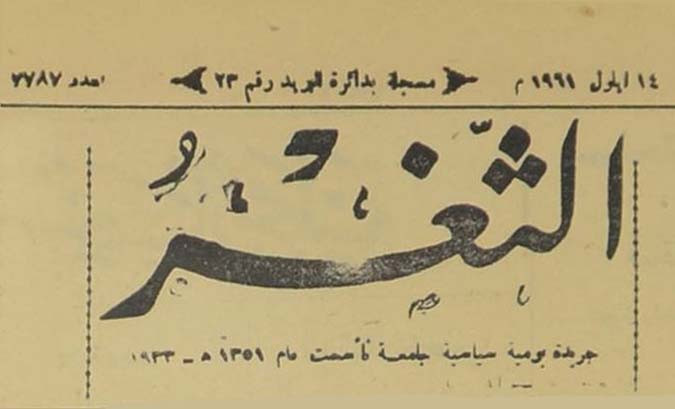 ١٤ ايلول ١٩٦١ م مسجلة بدائرة البريد رقم ٢٣ العدد ٧٧٨٧
الثَّغْرُ
جريدة يومية سياسية جامعة تأسست عام ١٣٥١ هـ ـ ١٩٣٣